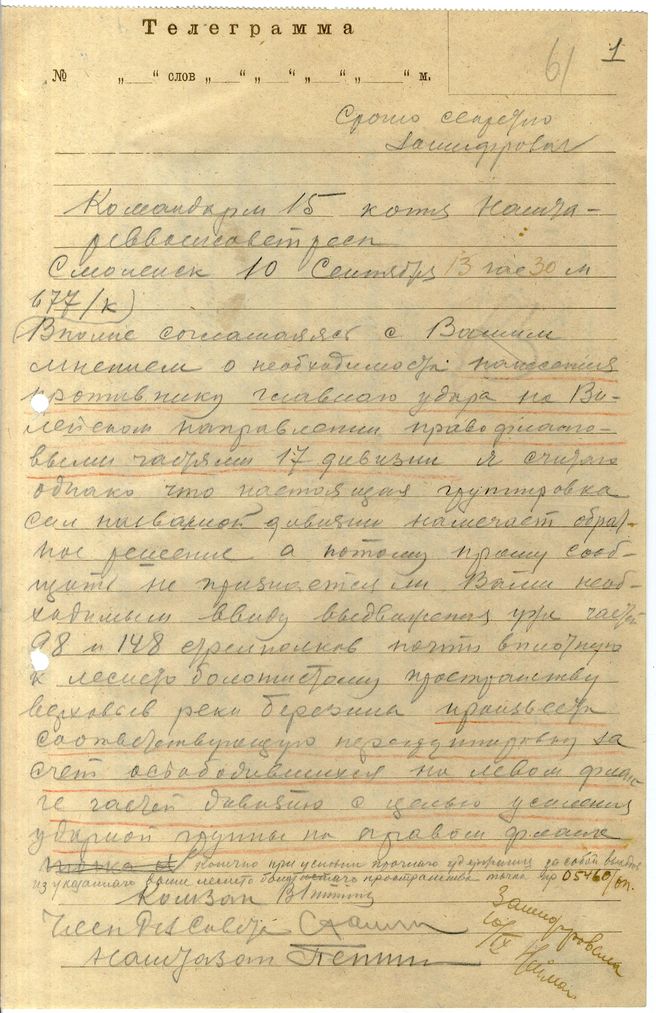 Телеграмма
№ „ “ слов „ “ „ “ „ “ „ “ м.
61 1
Срочно секретно
зашифровал
Командарм 15 копия Нашта-
реввоенсовет респ
Смоленск 10 Сентября 13 час 30 м
677/к)
Вполне соглашаясь с Вашим
мнением о необходимости нанесения
противнику главного удара на Ви-
лейском направлении правофланго-
выми частями 17 дивизии я считаю
однако что настоящая группировка
сил названной дивизии намечает обрат-
ное решение а потому прошу сооб-
щить не признается ли Вами необ-
ходимым ввиду выдвижения уже частей
98 и 148 стрелполков почти вплотную
к лесисто болотистому пространству
верховьев реки Березина произвести
соответствующую перегруппировку за
счет освободившихся на левом флан-
ге частей дивизию с целью усиления
ударной группы на правом фланге
конечно при условии прочного удержания за собой выходов
из указанного вами лесисто болотистого пространства точка нр 05460/оп.
Комзап
Член РВ Совета Сталин
Наштазап Петин
Зашифровала
10/IX